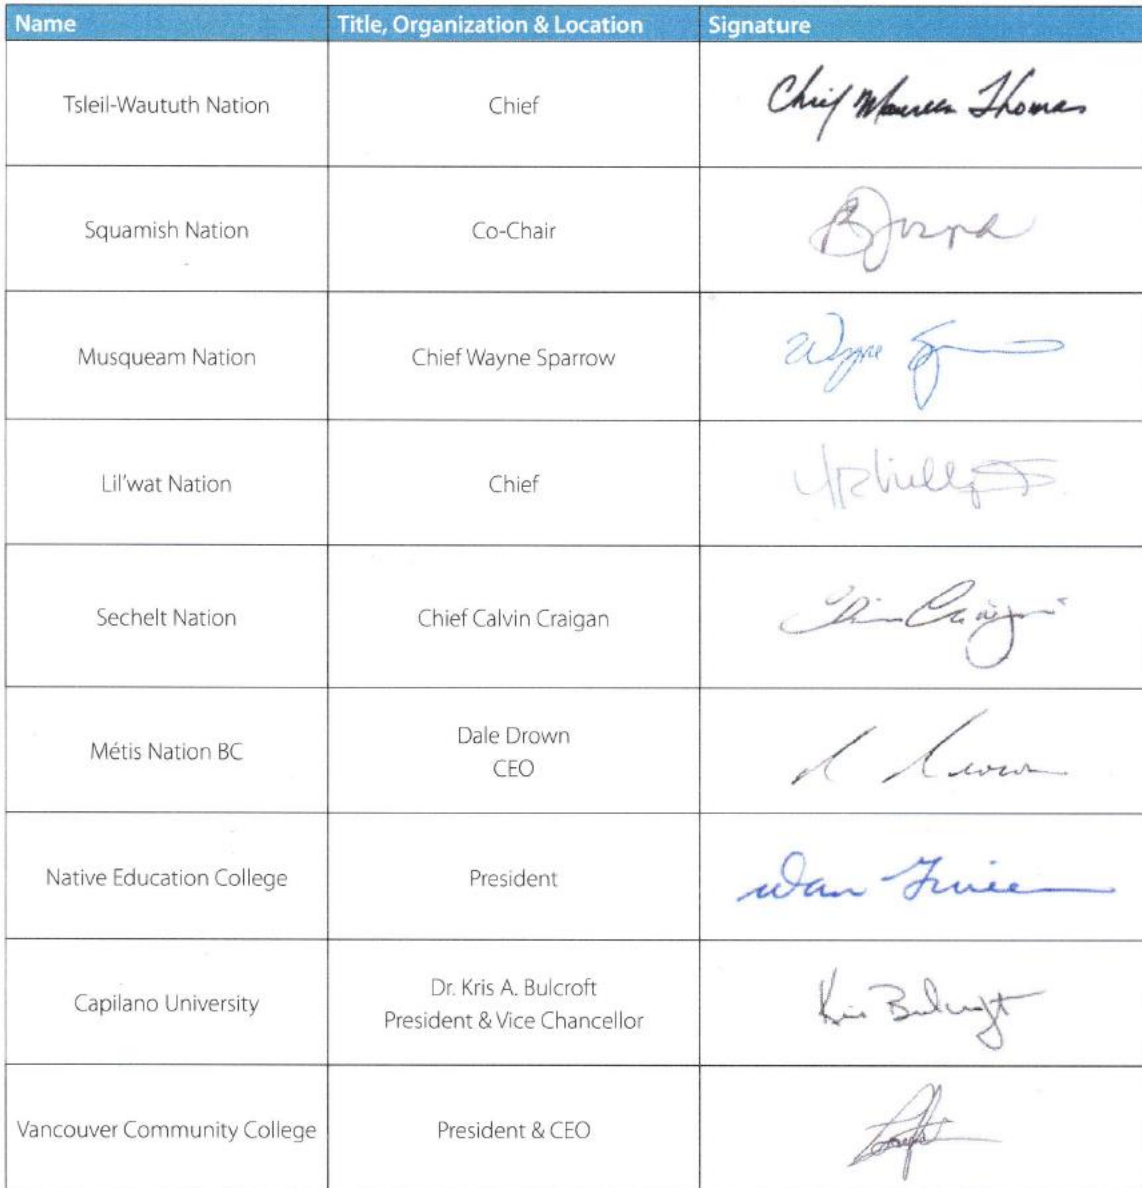 Name Title, Organization & Location Signature
Tsleil-Waututh Nation Chief Chief Maureen Thomas
Squamish Nation Co-Chair B Joseph
Musqueam Nation Chief Wayne Sparrow Wayne
Lil'wat Nation Chief
Sechelt Nation Chief Calvin Craigan Craigan
Métis Nation BC Dale Drown
CEO
Native Education College President Dan
Capilano University Dr. Kris A. Bulcroft Kris Bulcroft
President & Vice Chancellor
Vancouver Community College President & CEO